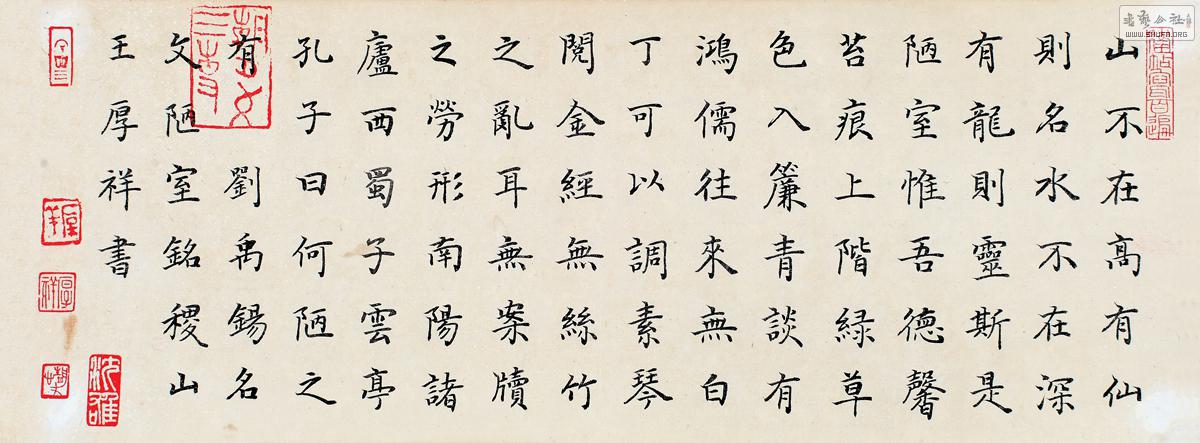 山不在高有仙
則名水不在深
有龍則靈斯是
陋室惟吾德馨
苔痕上階緑草
色入簾青談有
鴻儒往來無白
丁可以調素琴
閲金經無絲竹
之亂耳無案牘
之勞形南陽諸
廬西蜀子雲亭
孔子曰何陋之
有 劉禹錫名
文陋室銘稷山
王厚祥書
书艺公社
WWW.SHUFA.ORG